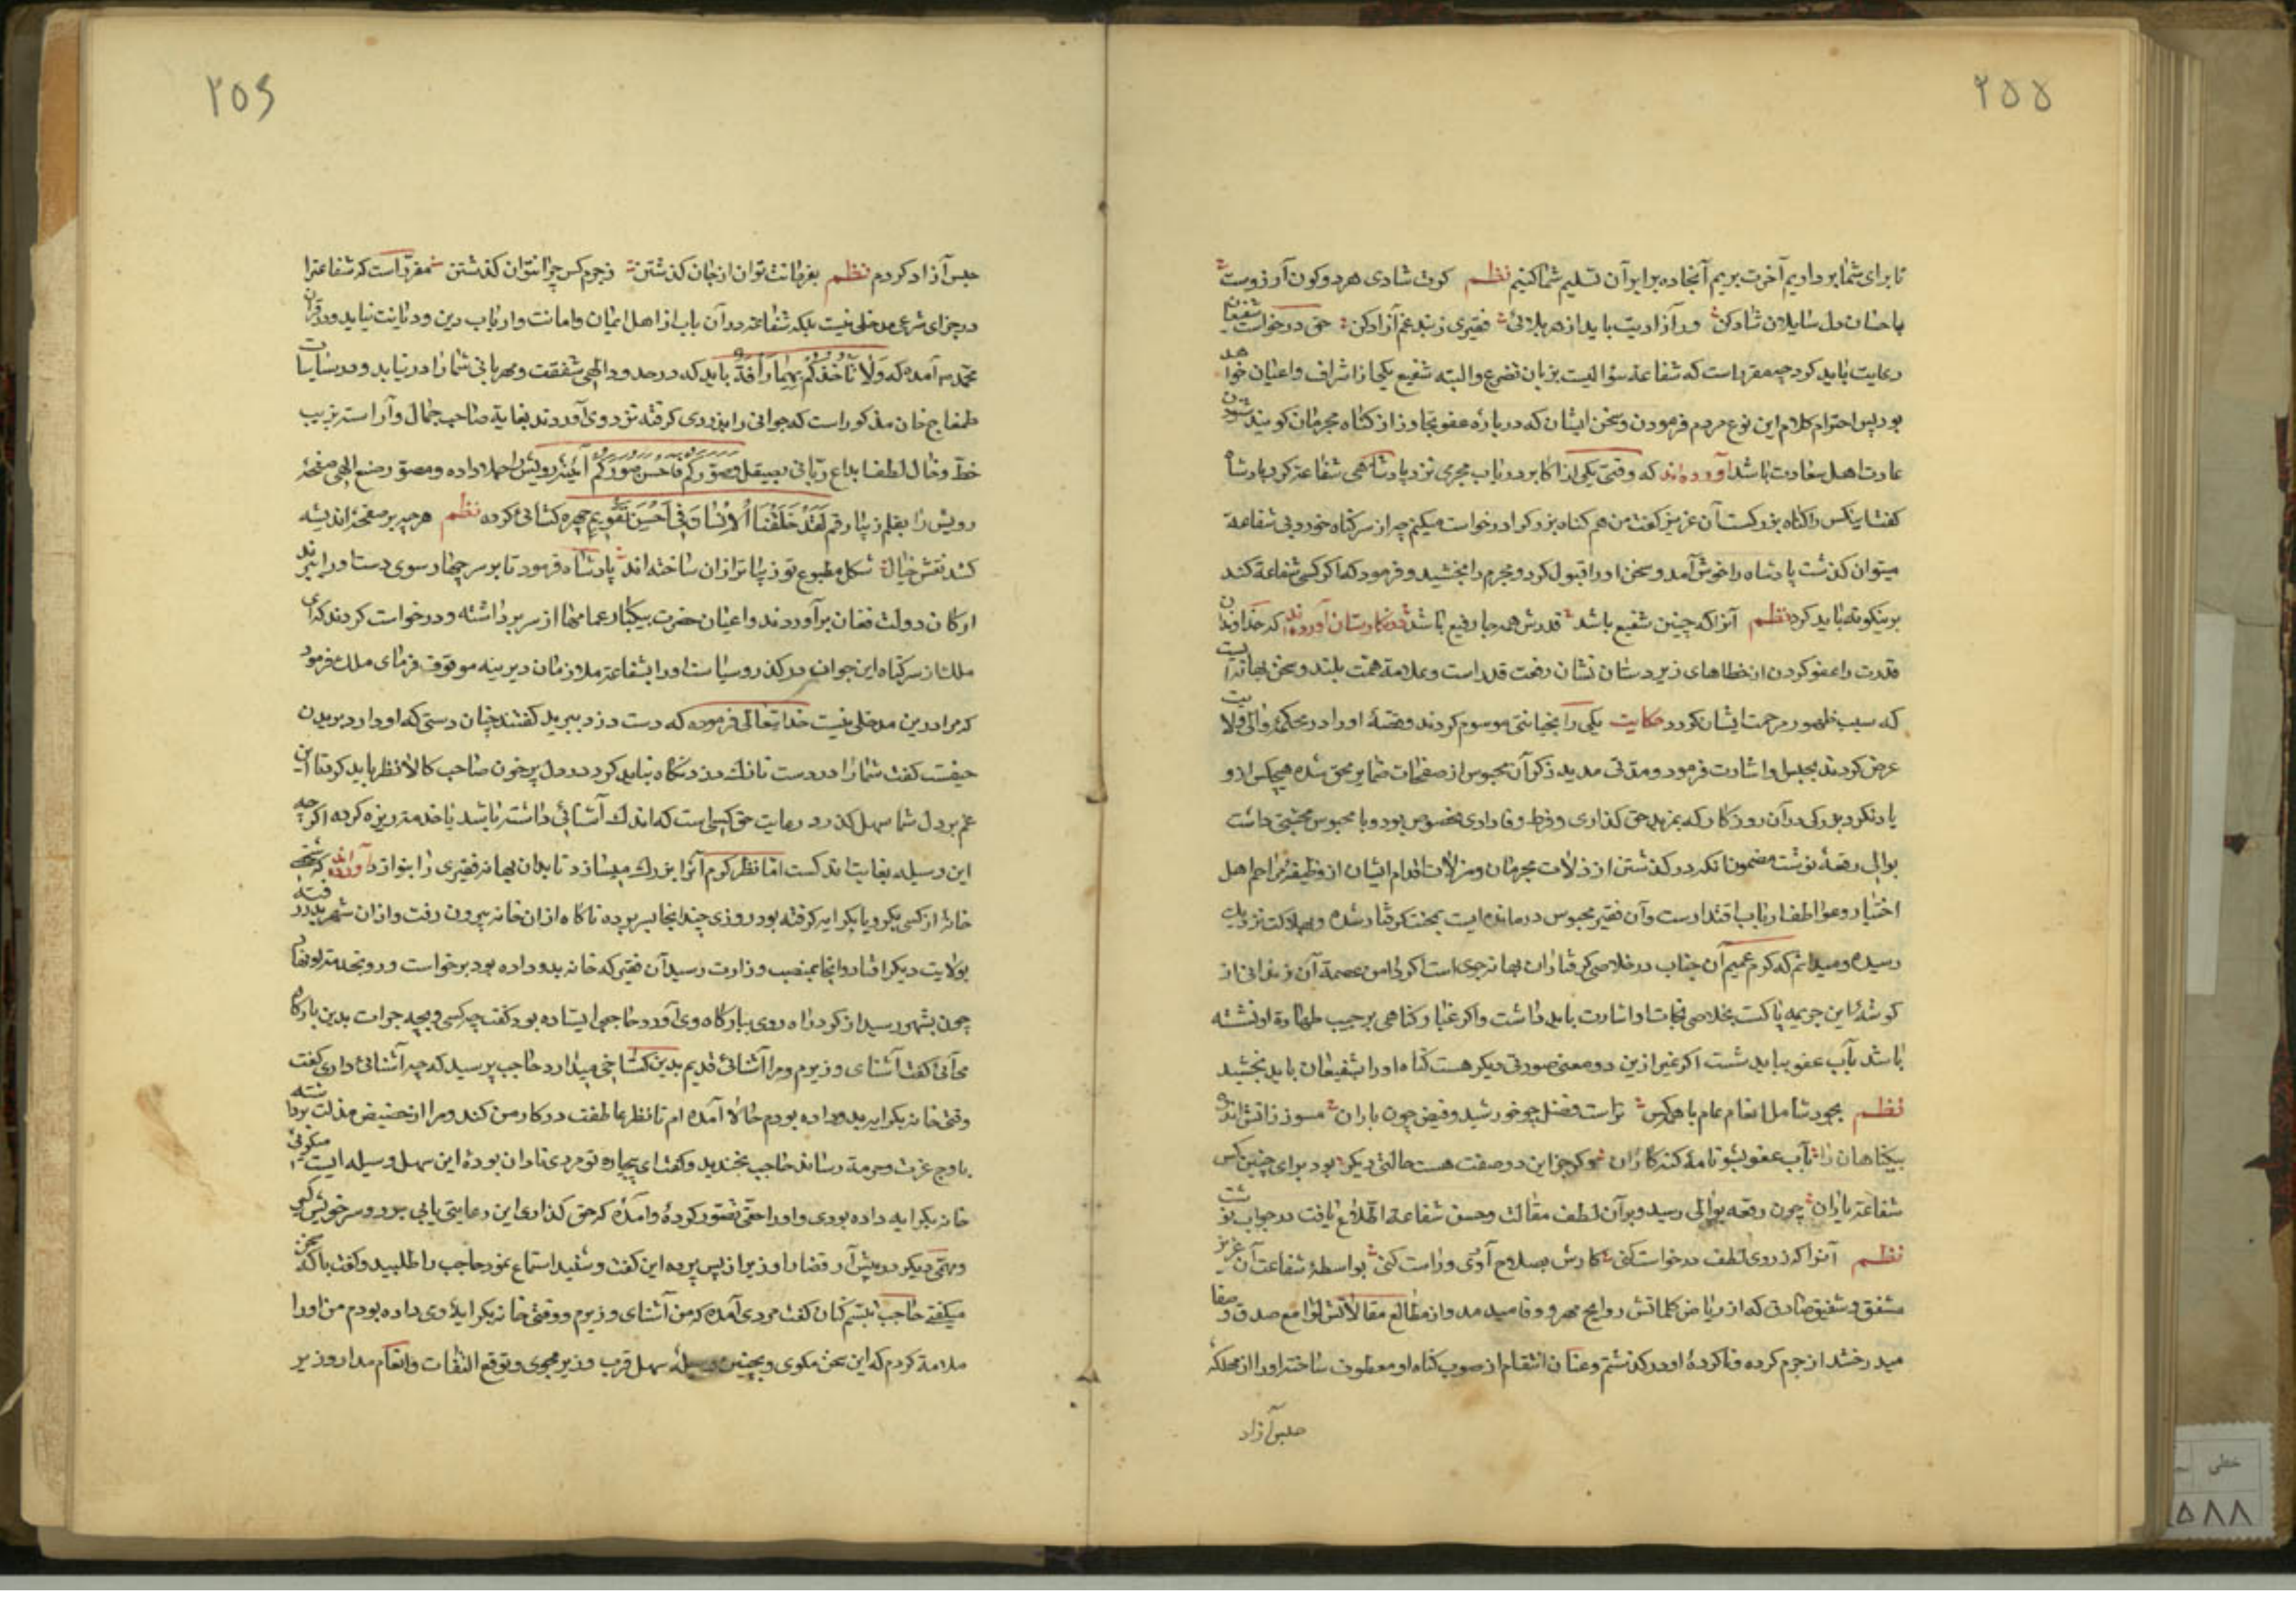 ۲۵۵
تا برای شما برداریم آخرت بریم آنجا ده برابر آن تسلیم شما کنیم نظم کرت شادی هر دو کون آرزوست
باحسان دل سایلان شاد کن ور آزادیت باید از هر بلائی فقیری ز بند غم آزاد کن حق درخواست شفیعان
رعایت باید کرد چه مقرر است که شفاعة سؤالیست بزبان تضرع والبته شفیع یکی از اشراف واعیان خواهد
بود پس احترام کلام این نوع مردم فرمودن وسخن ایشان که در باره عفو وتجاوز از کناه مجرمان کویند شنودن
عادت اهل سعادت باشد آورده‌اند که وقتی یکی از اکابر در باب مجرمی نزد پادشاهی شفاعة کرد پادشاه
کفت اینکس را کناه بزرکست آن عزیز کفت من هم کناه بزرک او درخواست میکنم چه از سر کناه خورد بی شفاعة
میتوان کذشت پادشاه را خوش آمد وسخن او را قبول کرد ومجرم را بخشید وفرمود که اکر کسی شفاعة کند
برینکونه باید کرد نظم آنرا که چنین شفیع باشد قدرش همه جا رفیع باشد در نکارستان آورده‌اند که خداوندان
قدرت را عفو کردن از خطاهای زیردستان نشان رفعت قدر است وعلامة همت بلند وسخن بهانه ایست
که سبب ظهور مرحمت ایشان کردد حکایت یکی را بخیانتی موسوم کردند وقصهٔ او را در محکمهٔ والی ولایت
عرض کردند بحبس او اشارت فرمود ومدتی مدید ذکر آن محبوس از صفحات ضمایر محو شده هیچکس از او
یاد نکرد بزرکی در آن روزکار که بمزید حق کذاری وفرط وفاداری مخصوص بود وبا محبوس محبتی داشت
بوالی رقعهٔ نوشت مضمون آنکه در کذشتن از زلات مجرمان ومزلات اقدام ایشان از وظیفهٔ مراحم اهل
اختیار وعواطف ارباب اقتدارست وآن فقیر محبوس درمانده ایست بمحنت کرفتار شده وبهلاکت نزدیک
رسیده ومیدانم که کرم عمیم آن جناب در خلاصی کرفتاران بهانه جوی است اکر دامن عصمة آن زندانی از
کوشهٔ این جریمه پاکست بخلاصی ونجات او اشارت باید داشت واکر غبار کناهی بر جیب طهارة او نشسته
باشد بآب عفو بباید شست اکر غیر ازین دو معنی صورتی دیکر هست کناه او را بشفیعان باید بخشید
نظم بجود شامل انعام عام با همه کس تراست فضل چو خورشید وفیض چون باران مسوز زآتش اندوه
بیکناهان را بآب عفو بشو نامهٔ کنهکاران وکر جز این دو صفت هست حالتی دیکر بود برای چنین کس
شفاعة یاران چون رقعه بوالی رسید وبرآن لطف مقالت وحسن شفاعة اطلاع یافت در جواب نوشت
نظم آنرا که ز روی لطف درخواست کنی کارش بصلاح آوری وراست کنی بواسطهٔ شفاعت آن عزیز
مشفق وشفیق صادق که از ریاض کلماتش روایح مهر ووفا میدمد واز مطالع مقالاتش لوامع صدق وصفا
میدرخشد از جرم کرده وناکردهٔ او درکذشتم وعنان انتقام از صوب کناه او معطوف ساخته او را از مهلکهٔ
حبس آزاد
۲۵۶
حبس آزاد کردم نظم بفرمانت توان از جان کذشتن ز جرم کس چرا نتوان کذشتن مقرر است که شفاعة را
در جزای شرعی مدخلی نیست بلکه شفاعة در آن باب از اهل ایمان وامانت وارباب دین ودیانت نیاید ودر قرآن
مجید آمده که ولا تأخذکم بهما رأفة باید که در حدود الهی شفقت ومهربانی شما را در نیابد ودر سیاسات
طمغاج خان مذکور است که جوانی را بدزدی کرفته نزد وی آوردند بغایة صاحب جمال وآراسته بزیب
خط وخال لطف ابداع ربانی بصیقل وصورکم فاحسن صورکم آینهٔ رویش را جلا داده ومصور صنع الهی صفحهٔ
رویش را بقلم زیبا رقم لقد خلقنا الانسان فی احسن تقویم چهره کشائی کرده نظم هر چه بر صفحهٔ اندیشه
کشد نقش خیال شکل مطبوع تو زیباتر از آن ساخته‌اند پادشاه فرمود تا بر سر چهارسوی دست او را ببرند
ارکان دولت فغان برآوردند واعیان حضرت بیکبار عمامها از سر برداشته ودرخواست کردند که ای
ملک از سر کناه این جوان درکذر وسیاست او را بشفاعة ملازمان دیرینه موقوف فرمای ملک فرمود
که مرا درین مدخلی نیست خدایتعالی فرموده که دست دزد ببرید کفتند چنان دستی که او دارد بریدن
حیفست کفت شما را در دست نازک دزد نکاه نباید کرد در دل پرخون صاحب کالا نظر باید کرد تا این
غم بر دل شما سهل کذرد رعایت حق کسی است که اندک آشنائی داشته باشد یا خدمة ریزه کرده اکرچه
این وسیله بغایت اندکست اما نظر کرم آنرا بزرک میسازد تا بدان بهانه فقیری را بنوازد آورده‌اند که شخصی
خانهٔ از کسی بکرو یا بکرایه کرفته بود روزی چند آنجا بسر برده ناکاه از آن خانه بیرون رفت واز آن شهر بدر رفته
بولایت دیکر افتاد وآنجا بمنصب وزارت رسید آن فقیر که خانه بدو داده بود برخواست ورو بخدمة او نهاد
چون بشهر رسید از کرد راه روی ببارکاه وی آورد حاجبی ایستاده بود کفت چه کسی وبچه جرات بدین بارکاه
می‌آئی کفت آشنای وزیرم ومرا آشنائی قدیم بدین کستاخی میدارد حاجب پرسید که چه آشنائی داری کفت
وقتی خانه بکرایه بدو داده بودم حالا آمده ام تا نظر عاطفت در کار من کند ومرا از حضیض مذلت برداشته
باوج عزت وحرمة رساند حاجب بخندید وکفت ای بیچاره تو مردی نادان بودهٔ این سهل وسیله ایست میکوئی
خانه بکرایه داده بودی واو را حقی تصور کردهٔ وآمدهٔ که حق کذاری این رعایتی یابی برو وسر خویش کیر
ومهمی دیکر در پیش آر قضا را وزیر از پس پرده این کفت وشنید استماع نمود حاجب را طلبید وکفت با که سخن
میکفتی حاجب تبسم کنان کفت مردی آمده که من آشنای وزیرم ووقتی خانه بکرایه بوی داده بودم من او را
ملامة کردم که این سخن مکوی وبچنین وسیلهٔ سهل قرب وزیر مجوی وتوقع التفات وانعام مدار وزیر
خطی
۵۸۸